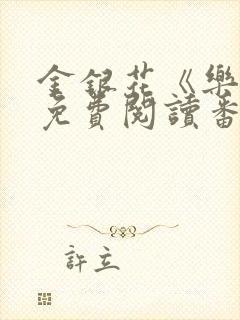 金銀花《樂
免費閱讀番
許立